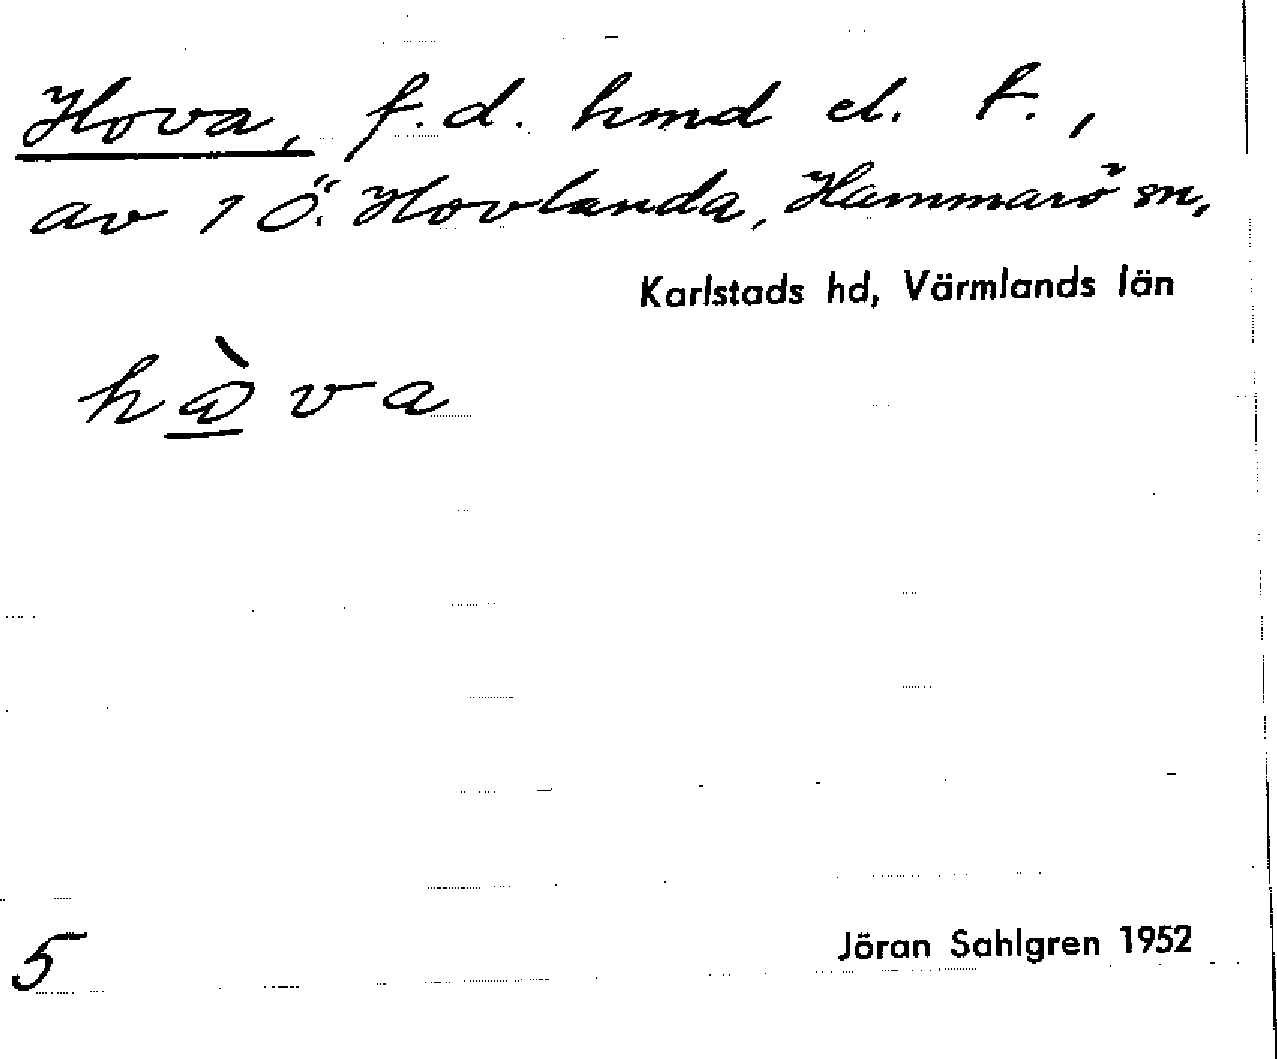 Hova, f.d. hmd el. t.,
av 1 Ö. Hovlanda, Hammarö sn,
Karlstads hd, Värmlands län
hàva
5
Jöran Sahlgren 1952